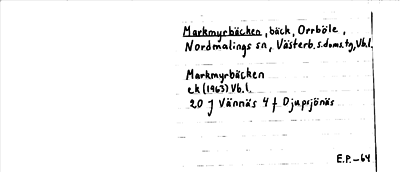 Markmyrbäcken, bäck, Orrböle,
Nordmalings sn, Västerb. s. doms. tg, Vb.l.
Markmyrbäcken
ek (1963) Vb. l.
20 J Vännäs 4 f Djupsjönäs
E.P.-64